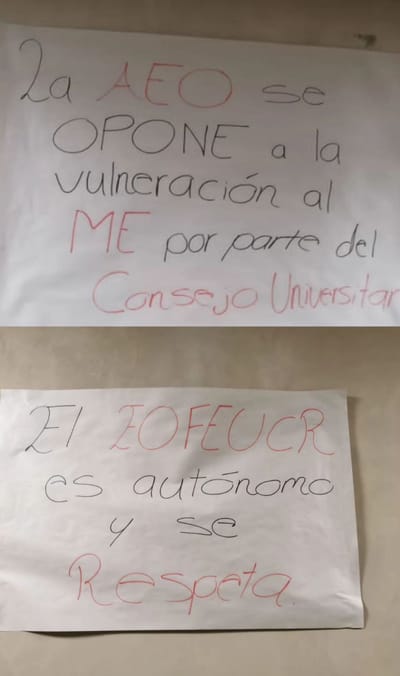 La AEO se
OPONE a la
vulneración al
ME por parte del
Consejo Universitar
El EOFEUCR
es autónomo
y se
Respeta.